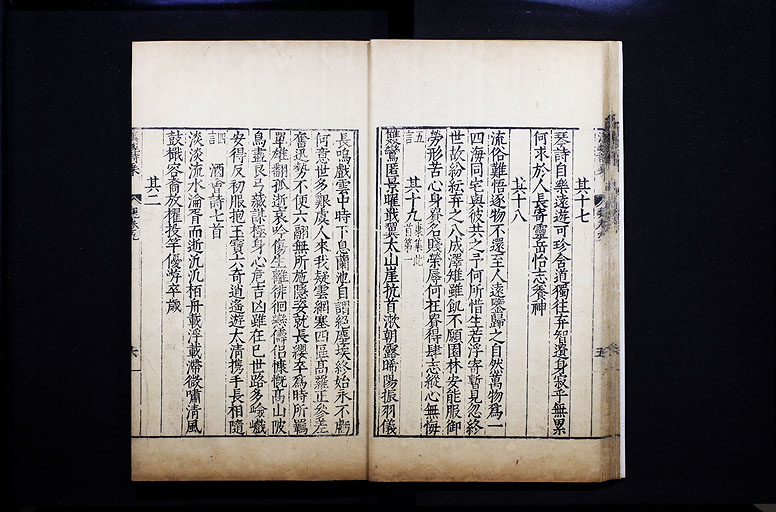 其十七
琴詩自樂遠遊可珍含道獨往弃智遺身寂乎無累
何求於人長寄靈岳怡志養神
其十八
流俗難悟逐物不還至人遠鑒歸之自然萬物為一
四海同宅與彼共之予何所惜生若浮寄暫見忽終
世故紛紜弃之八成澤雉雖飢不願園林安能服御
勞形苦心身貴名賤榮辱何在貴得肆志縱心無悔
其十九
五言
雙鸞匿景曜戢翼太山崖抗首漱朝露晞陽振羽儀
長鳴戲雲中時下息蘭池自謂絕塵埃終始永不虧
何意世多艱虞人來我疑雲網塞四區高羅正參差
奮迅勢不便六翮無所施隱姿就長纓卒為時所羈
單雄翩孤逝哀吟傷生離徘徊戀儔侣慷慨高山陂
鳥盡良弓藏謀極身心危吉凶雖在己世路多嶮巇
安得反初服抱玉寶六奇逍遙遊太清携手長相隨
四言
酒會詩七首
淡淡流水淪胥而逝汎汎栢舟載浮載滯微嘯清風
鼓檝容裔放櫂投竿優游卒歲
其二